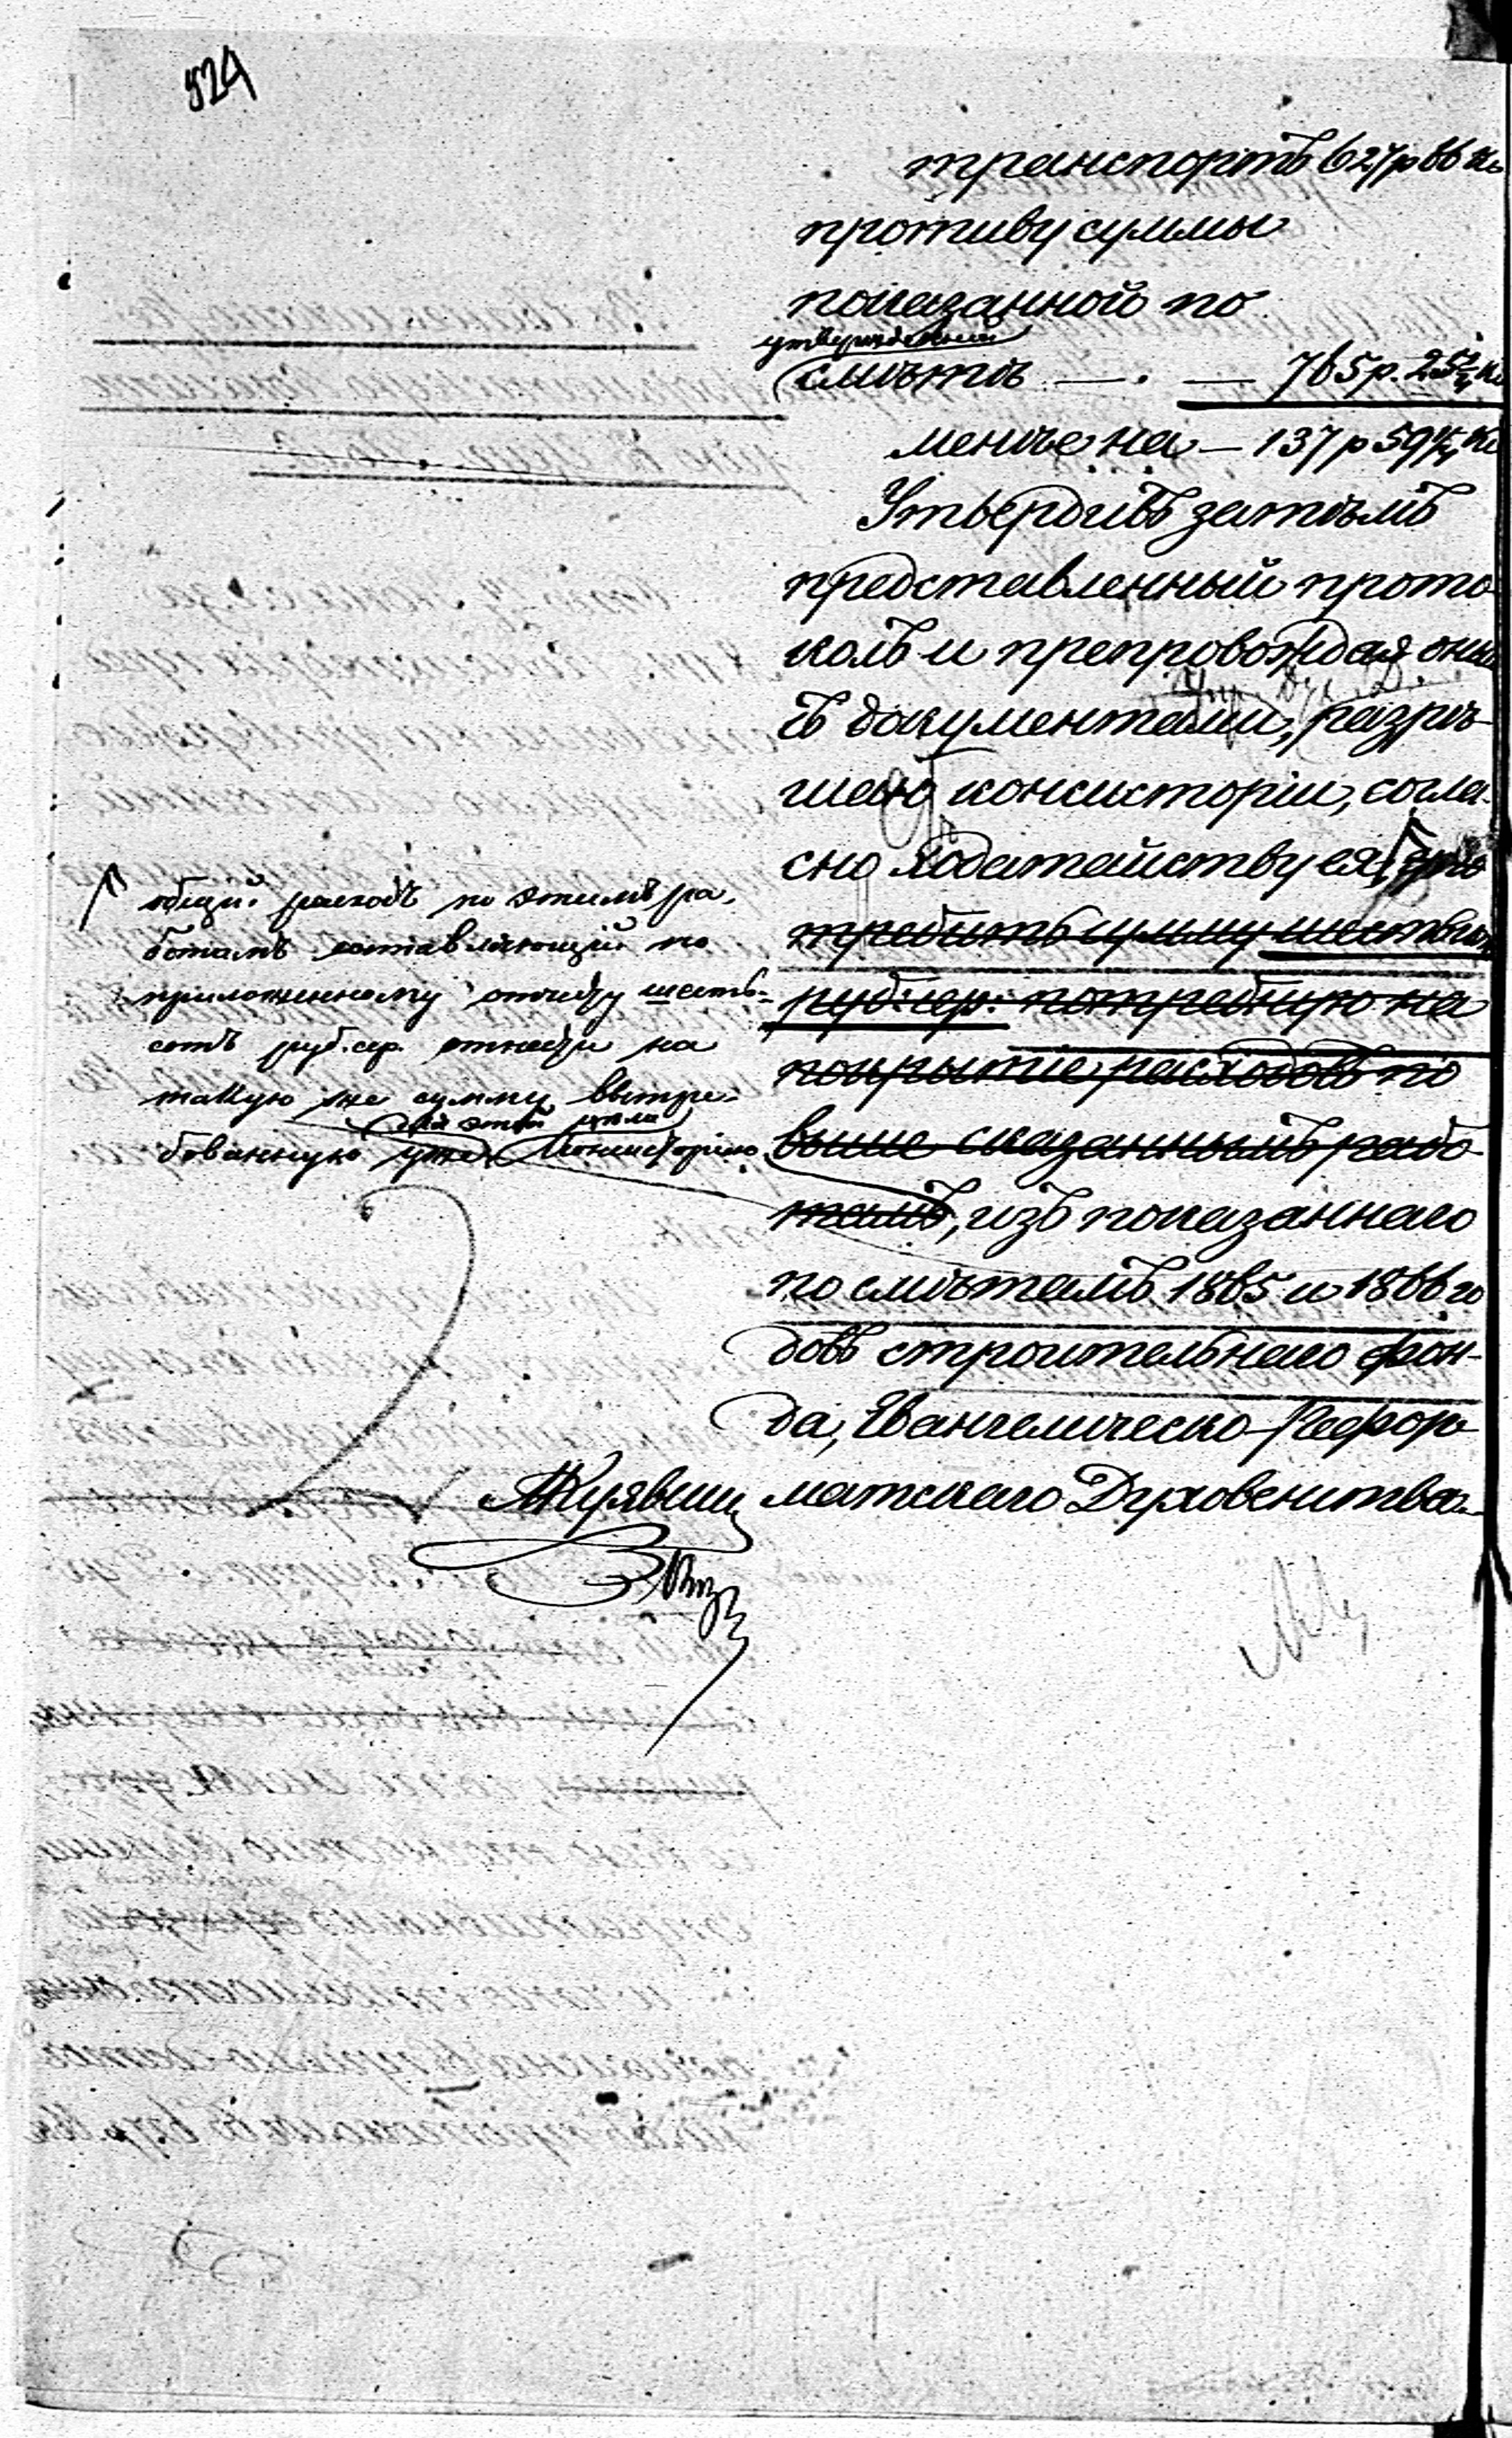 524
транспортъ 627 р 66 к.
противу суммы
показанной по
утвержденной
смѣтѣ — . — 765 р. 25 2/4 к
менѣе на — 137 р 59 2/4 к
Утвердивъ затѣмъ
представленный прото-
колъ и препровождая оный
съ документами, разрѣ-
шаю консисторіи, согла-
сно ходатайству ея,
требить сумму шестьсотъ
руб: сер: потребную на
покрытіе расходовъ по
выше сказаннымъ рабо-
тамъ, изъ показаннаго
по смѣтамъ 1865 и 1866 го
довъ строительнаго фон-
да, Евангелическо-Рефор-
матскаго Духовенства.
общій расходъ по этимъ ра-
ботамъ составляющій по
приложенному отчету шесть-
сотъ руб. сер. отнести на
такую же сумму вытре-
для этой цѣли
бованную уже Консисторіею